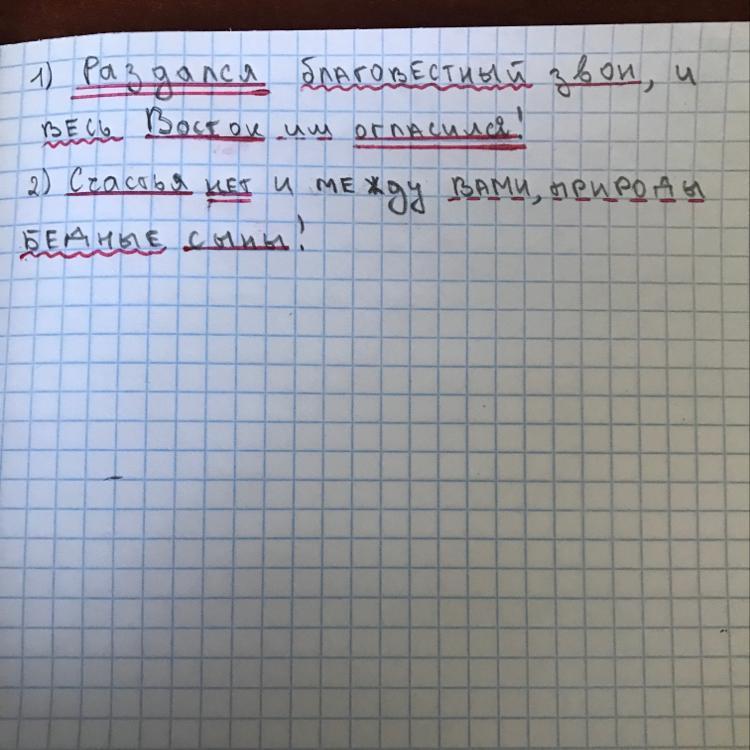 1) Раздался благовестный звон, и
весь Восток им огласился!
2) Счастья нет и между вами, природы
бедные сыны!